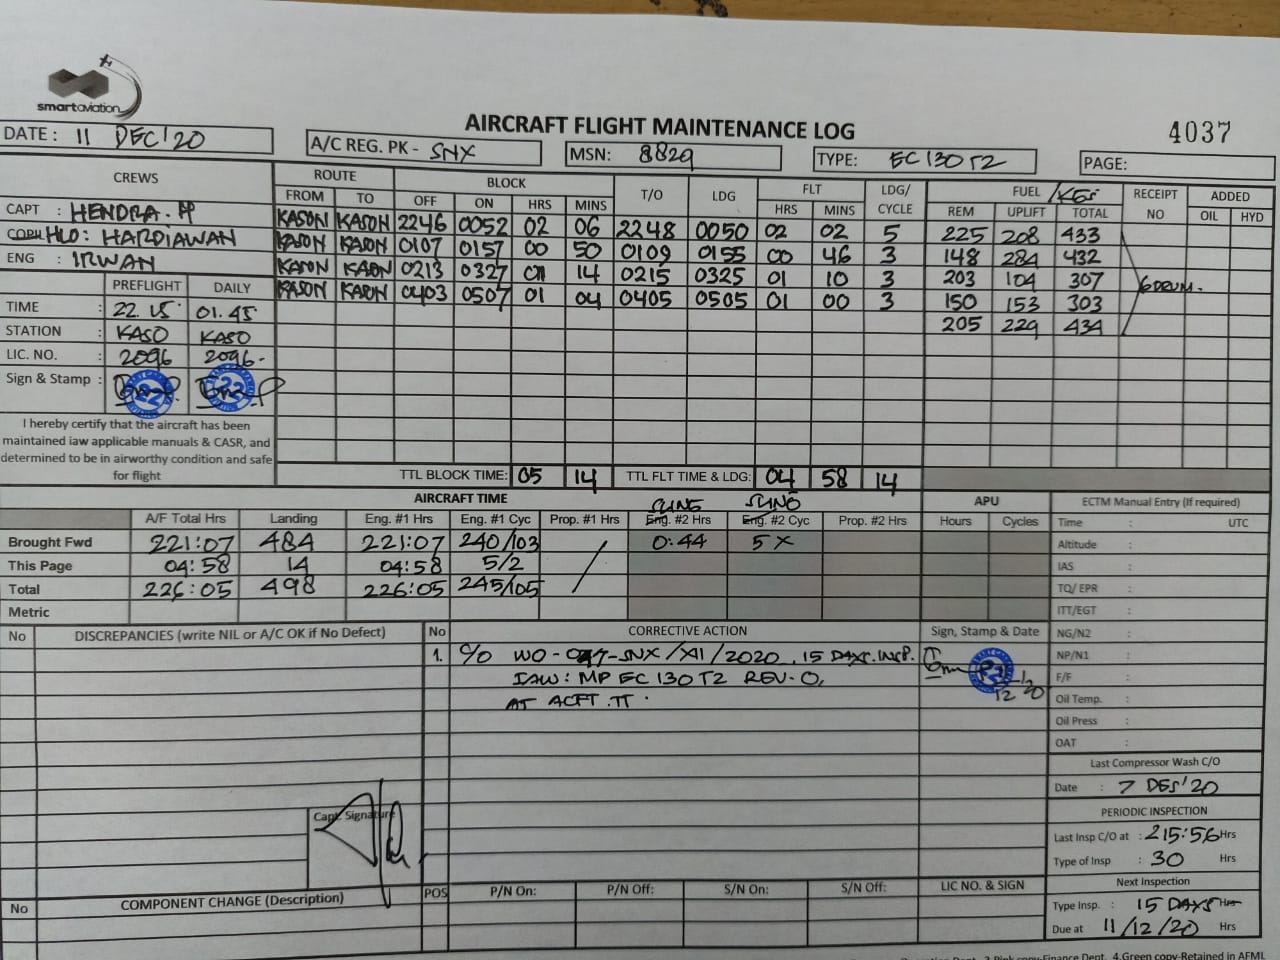 smartaviation
AIRCRAFT FLIGHT MAINTENANCE LOG
4037
DATE : 11 DEC'20
A/C REG. PK - SNX
MSN: 8829
TYPE: EC 130 T2
PAGE:
CREWS
ROUTE
BLOCK
T/O
LDG
FLT
LDG/ CYCLE
FUEL /KGS
RECEIPT NO
ADDED
FROM TO OFF ON HRS MINS HRS MINS REM UPLIFT TOTAL OIL HYD
CAPT : HENDRA. PP
HLO: HARDIAWAN
ENG : IRWAN
KASON KASON 2246 0052 02 06 2248 0050 02 02 5 225 208 433
KASON KASON 0107 0157 00 50 0109 0155 00 46 3 148 284 432
KASON KASON 0213 0327 01 14 0215 0325 01 10 3 203 104 307
KASON KASON 0403 0507 01 04 0405 0505 01 00 3 150 153 303
205 229 434
6 DRUM.
PREFLIGHT DAILY
TIME : 22.15 01.45
STATION : KASO KASO
LIC. NO. : 2096 2096-
Sign & Stamp :
22 22
I hereby certify that the aircraft has been
maintained iaw applicable manuals & CASR, and
determined to be in airworthy condition and safe
for flight
TTL BLOCK TIME: 05 14 TTL FLT TIME & LDG: 04 58 14
AIRCRAFT TIME
APU
ECTM Manual Entry (If required)
A/F Total Hrs Landing Eng. #1 Hrs Eng. #1 Cyc Prop. #1 Hrs Eng. #2 Hrs Eng. #2 Cyc Prop. #2 Hrs Hours Cycles
Brought Fwd 221:07 484 221:07 240/103 0:44 5 X
This Page 04:58 14 04:58 5/2
Total 226:05 498 226:05 245/105
Metric
Time : UTC
Altitude :
IAS :
TQ/ EPR :
ITT/EGT :
NG/N2 :
NP/N1 :
F/F :
Oil Temp. :
Oil Press :
OAT :
No DISCREPANCIES (write NIL or A/C OK if No Defect)
No CORRECTIVE ACTION Sign, Stamp & Date
1. C/O WO-047-SNX/XII/2020. 15 DAYS.INSP.
IAW: MP EC 130 T2 REV.0,
AT ACFT .TT.
Capt. Signature
Last Compressor Wash C/O
Date : 7 DES'20
PERIODIC INSPECTION
Last Insp C/O at : 215:56 Hrs
Type of Insp : 30 Hrs
Next Inspection
Type Insp. : 15 DAYS Hrs
Due at 11/12/20 Hrs
No COMPONENT CHANGE (Description) POS P/N On: P/N Off: S/N On: S/N Off: LIC NO. & SIGN
copy-Finance Dept. 4.Green copy-Retained in AFML